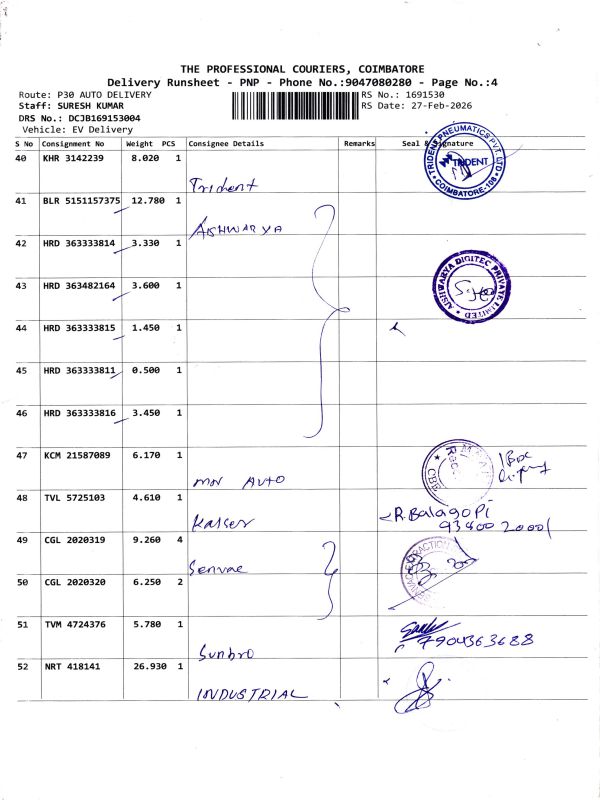 THE PROFESSIONAL COURIERS, COIMBATORE
Delivery Runsheet - PNP - Phone No.:9047080280 - Page No.:4
Route: P30 AUTO DELIVERY
RS No.: 1691530
Staff: SURESH KUMAR
RS Date: 27-Feb-2026
DRS No.: DCJB169153004
Vehicle: EV Delivery
S No Consignment No Weight PCS Consignee Details Remarks Seal & Signature
40 KHR 3142239 8.020 1
TRIDENT PNEUMATICS PVT. LTD
TRIDENT
COIMBATORE-106
Trident
41 BLR 5151157375 12.780 1
AISHWARYA
42 HRD 363333814 3.330 1
AISHWARYA DIGITEC PRIVATE LIMITED
43 HRD 363482164 3.600 1
44 HRD 363333815 1.450 1
45 HRD 363333811 0.500 1
46 HRD 363333816 3.450 1
47 KCM 21587089 6.170 1
1 Box
AUTO
48 TVL 5725103 4.610 1
R. Balagopi
Kaiser
49 CGL 2020319 9.260 4
50 CGL 2020320 6.250 2
51 TVM 4724376 5.780 1
7904363688
Sunbro
52 NRT 418141 26.930 1
INDUSTRIAL